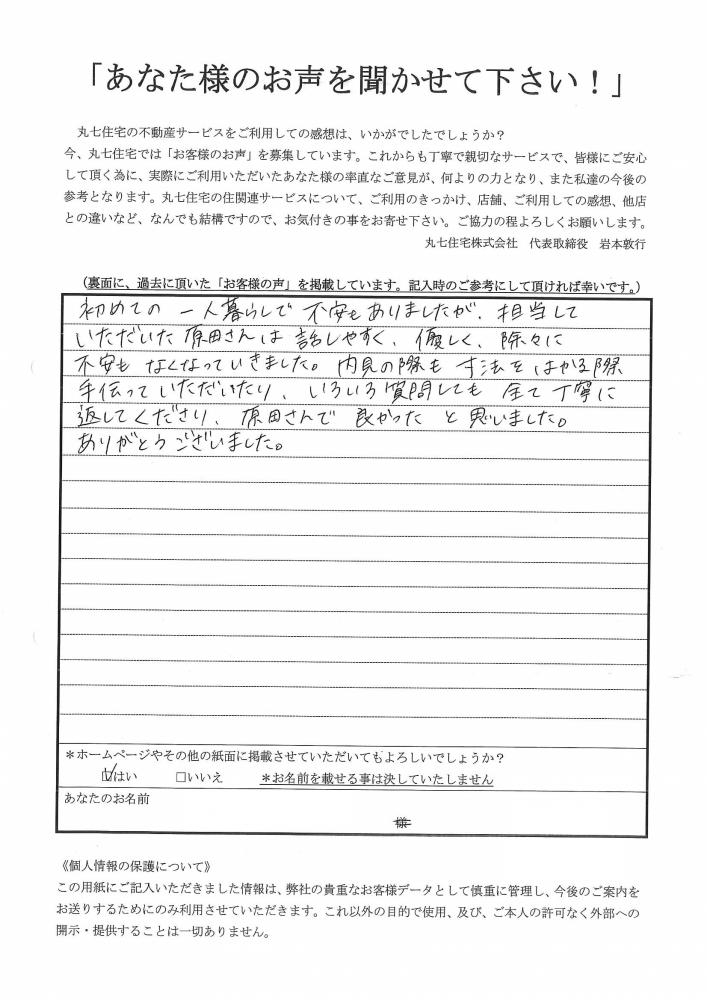 「あなた様のお声を聞かせて下さい！」
丸七住宅の不動産サービスをご利用しての感想は、いかがでしたでしょうか？
今、丸七住宅では「お客様のお声」を募集しています。これからも丁寧で親切なサービスで、皆様にご安心
して頂く為に、実際にご利用いただいたあなた様の率直なご意見が、何よりの力となり、また私達の今後の
参考となります。丸七住宅の住関連サービスについて、ご利用のきっかけ、店舗、ご利用しての感想、他店
との違いなど、なんでも結構ですので、お気付きの事をお寄せ下さい。ご協力の程よろしくお願いします。
丸七住宅株式会社　代表取締役　岩本敦行
（裏面に、過去に頂いた「お客様の声」を掲載しています。記入時のご参考にして頂ければ幸いです。）
初めての 一人暮らしで 不安もありましたが、担当して
いただいた 原田さんは 話しやすく、優しく、除々に
不安も なくなっていきました。内見の際も 寸法をはかる際
手伝っていただいたり、いろいろ質問しても 全て丁寧に
返してくださり、原田さんで 良かった と思いました。
ありがとうございました。
＊ホームページやその他の紙面に掲載させていただいてもよろしいでしょうか？
☑はい　□いいえ　＊お名前を載せる事は決していたしません
あなたのお名前
様
《個人情報の保護について》
この用紙にご記入いただきました情報は、弊社の貴重なお客様データとして慎重に管理し、今後のご案内を
お送りするためにのみ利用させていただきます。これ以外の目的で使用、及び、ご本人の許可なく外部への
開示・提供することは一切ありません。